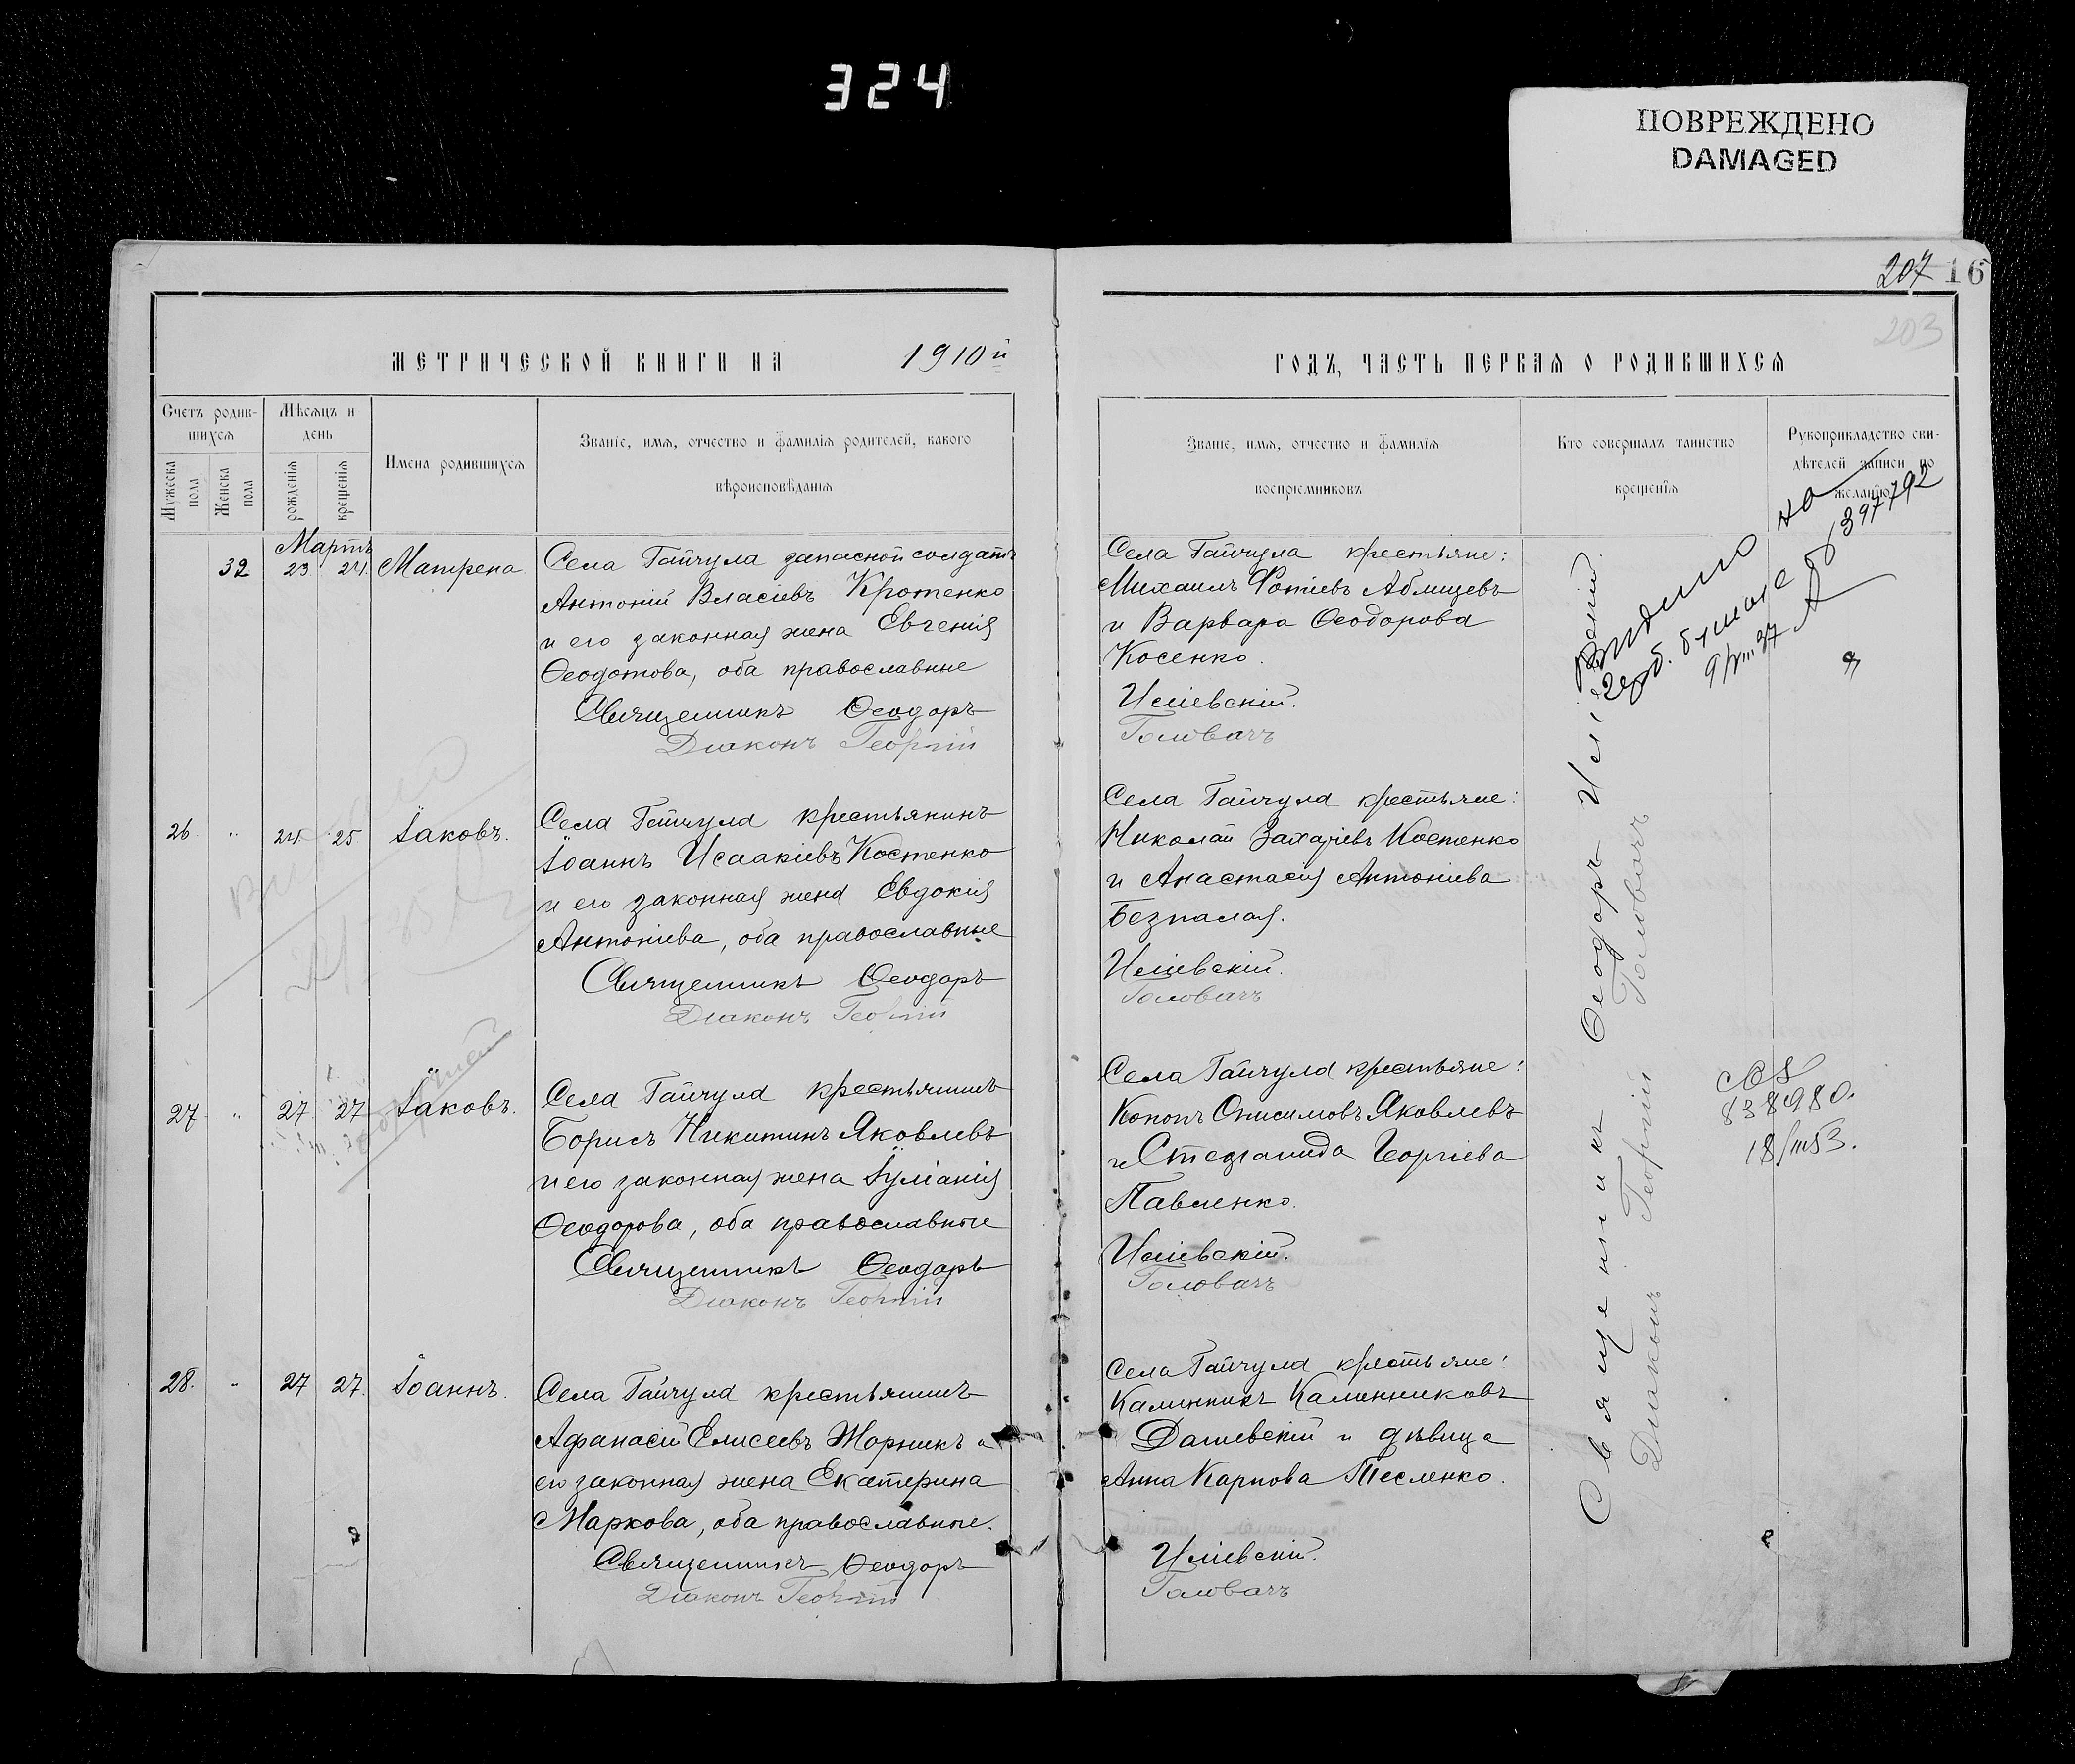 324
ПОВРЕЖДЕНО
DAMAGED
207 16
203
МЕТРИЧЕСКОЙ КНИГИ НА 1910й
Счетъ родив-
шихся
Мужеска пола
Женска пола
Мѣсяцъ и
день
рожденія
крещенія
Имена родившихся
Званіе, имя, отчество и фамилія родителей, какого
вѣроисповѣданія
Мартъ
32 23 24. Матрена
Села Гайчула запасной солдатъ
Антоній Власіевъ Кротенко
и его законная жена Евгенія
Ѳеодотова, оба православные
Священникъ Ѳеодоръ
Діаконъ Георгій
26. " 24. 25 Іаковъ.
Села Гайчула крестьянинъ
Іоаннъ Исаакіевъ Костенко
и его законная жена Евдокія
Антоніева, оба православные
Священникъ Ѳеодоръ
Діаконъ Георгій
27 " 27. 27 Іаковъ.
Села Гайчула крестьянинъ
Борисъ Никитинъ Яковлевъ
и его законная жена Іуліанія
Ѳеодорова, оба православные
Священникъ Ѳеодоръ
Діаконъ Георгій
28. " 27 27. Іоаннъ.
Села Гайчула крестьянинъ
Афанасій Елисеевъ Жорникъ и
его законная жена Екатерина
Маркова, оба православные.
Священникъ Ѳеодоръ
Діаконъ Георгій
ГОДЪ, ЧАСТЬ ПЕРВАЯ О РОДИВШИХСЯ
Званіе, имя, отчество и фамилія
воспріемниковъ
Кто совершалъ таинство
крещенія
Рукоприкладство сви-
дѣтелей записи по
желанію
Села Гайчула крестьяне:
Михаилъ Фотіевъ
и Варвара Ѳеодорова
Косенко.
Иліевскій.
Головачъ
Села Гайчула крестьяне:
Николай Захаріевъ Костенко
и Анастасія Антоніева
Безпалая.
Иліевскій.
Головачъ
Села Гайчула крестьяне:
Кононъ Онисимовъ Яковлевъ
и Стефанида Георгіева
Павленко.
Иліевскій.
Головачъ
Села Гайчула крестьяне:
Каллиникъ Каллинниковъ
Дашевскій и дѣвица
Анна Карпова Тесленко.
Иліевскій.
Головачъ
Священникъ Ѳеодоръ Иліевскій.
Діаконъ Георгій Головачъ
Видано на
герб. бумаге 397792
9/VIII 37
838980.
18/III 53.